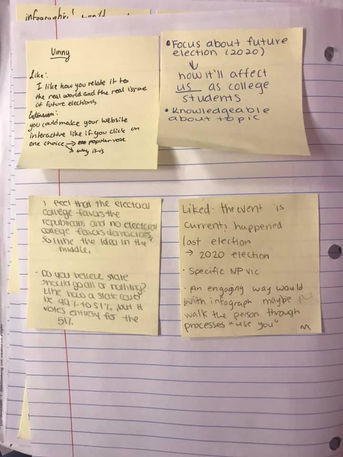 Unny
Like:
I like how you relate it to
the real world and the real issue
of future elections.
you could make your website
interactive like if you click on
one choice → popular vote
→ why it is
• Focus about future
election (2020)
↓
how it'll affect
us as college
students
• Knowledgeable
about topic
I feel that the electoral
college favors the
republicans and no electoral
college favors democrats,
so like the idea in the
middle.
- Do you believe state
should go all or nothing?
Like how a state could
be 49% to 51%, but it
votes entirely for the
51%.
Liked - the event is
current & happened
last election
→ 2020 election
- Specific NPVIC
- An engaging way would
with infograph maybe
walk the person through
processes "use you"